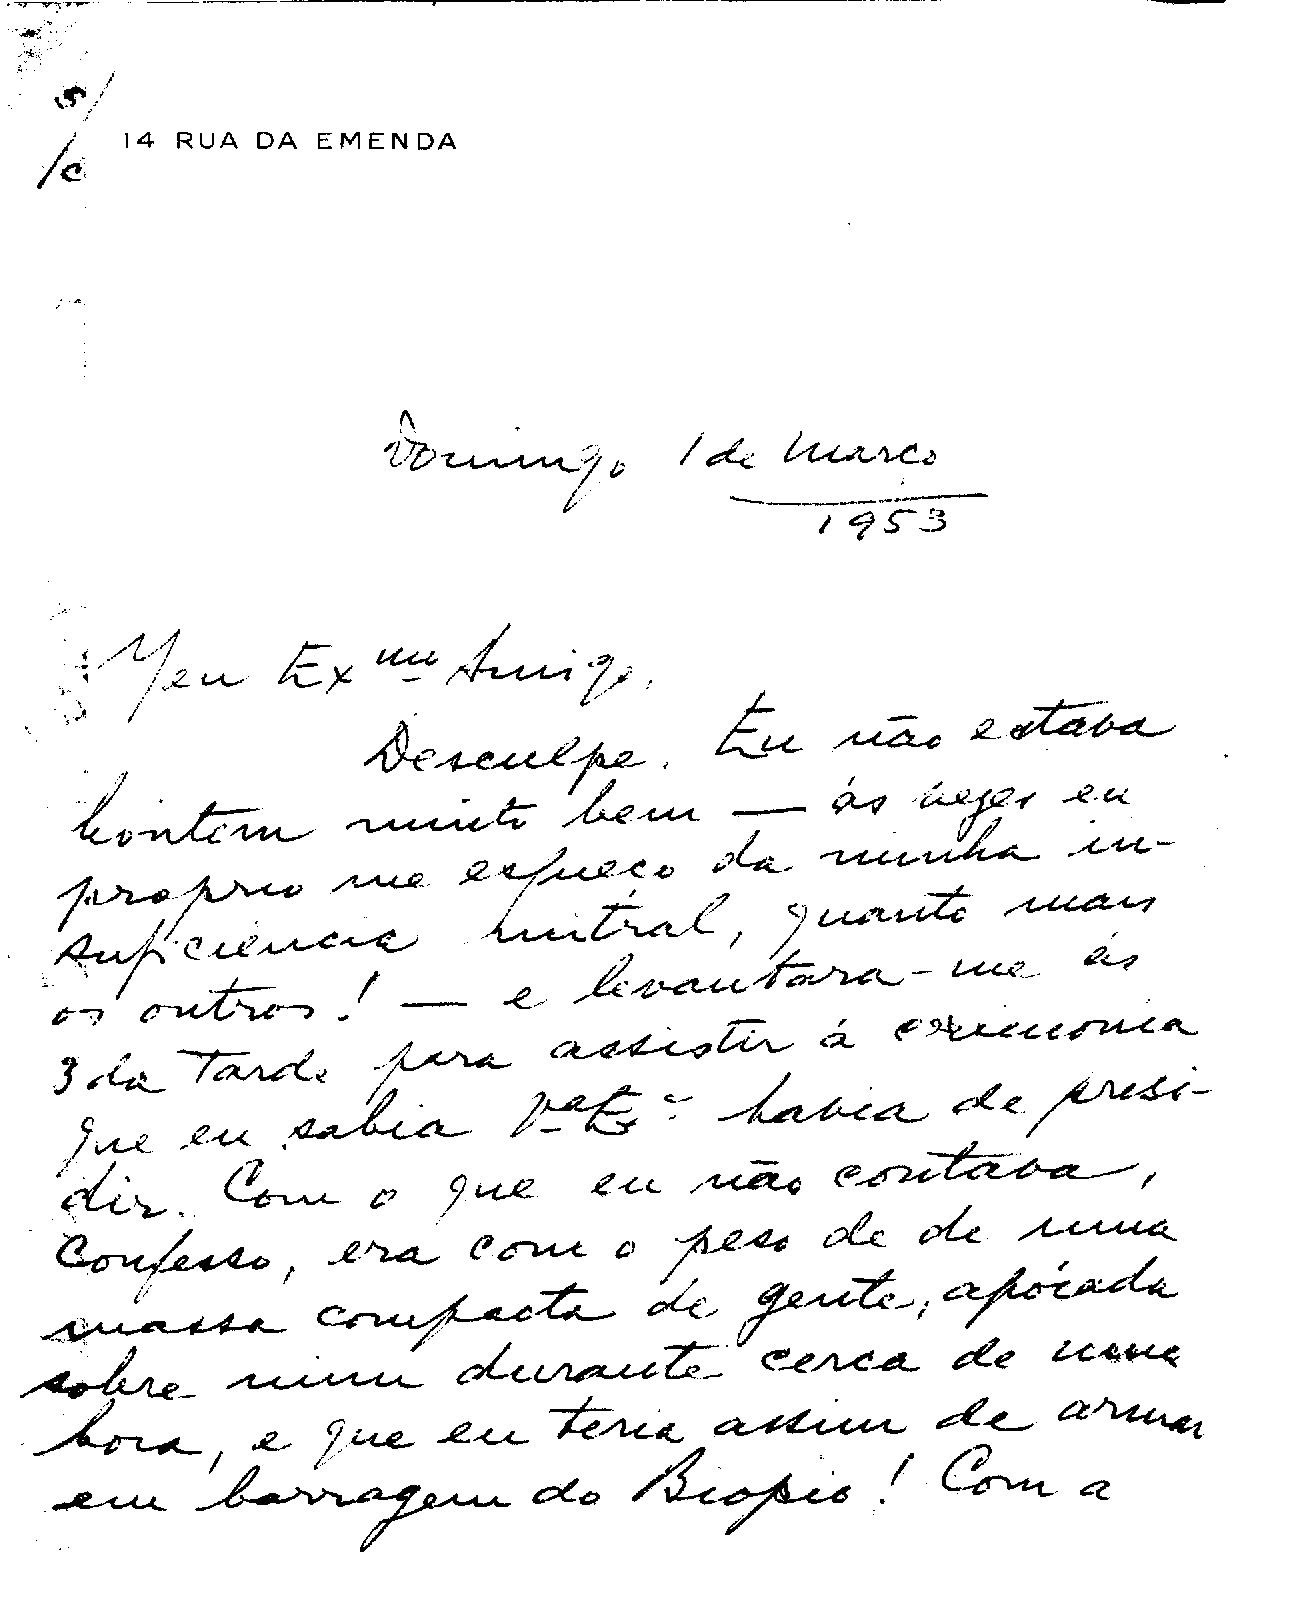 5/
/c
14 RUA DA EMENDA
Domingo 1 de Março
1953
Meu Exmo Amigo,
Desculpe. Eu não estava
hontem muito bem — às vezes eu
proprio me esqueço da minha in-
suficiencia mitral, quanto mais
os outros! — e levantara-me ás
3 da tarde para assistir á cerimonia
que eu sabia Va Exa havia de presi-
dir. Com o que eu não contava,
confesso, era com o peso de de uma
massa compacta de gente, apoiada
sobre mim durante cerca de uma
hora, e que eu teria assim de armar
em barragem do Biopio! Com a